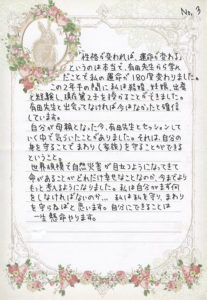 No. 3
「性格が変われば、運命が変わる」
というのは本当で、有田先生から学ん
だことで私の運命が180度変わりました。
この2年半の間に私は結婚、妊娠、出産
を経験し、現在第2子を授かることができました。
有田先生と出会ってなければ今はなかったと確信
しています。
自分が母親となった今、有田先生とセッションして
いく中で気づいたことがありました。それは、自分の
身を守ることで まわり(家族)を守ることができる
ということ。
世界規模で自然災害が目立つようになってきて
命があることがどれだけ幸せなことなのか、今までより
もっと考えるようになりました。私は自分がまず何
をしなければならないのか… 私は私を守り、まわり
を守らねばと思います。自分にできることは
一生懸命やります。